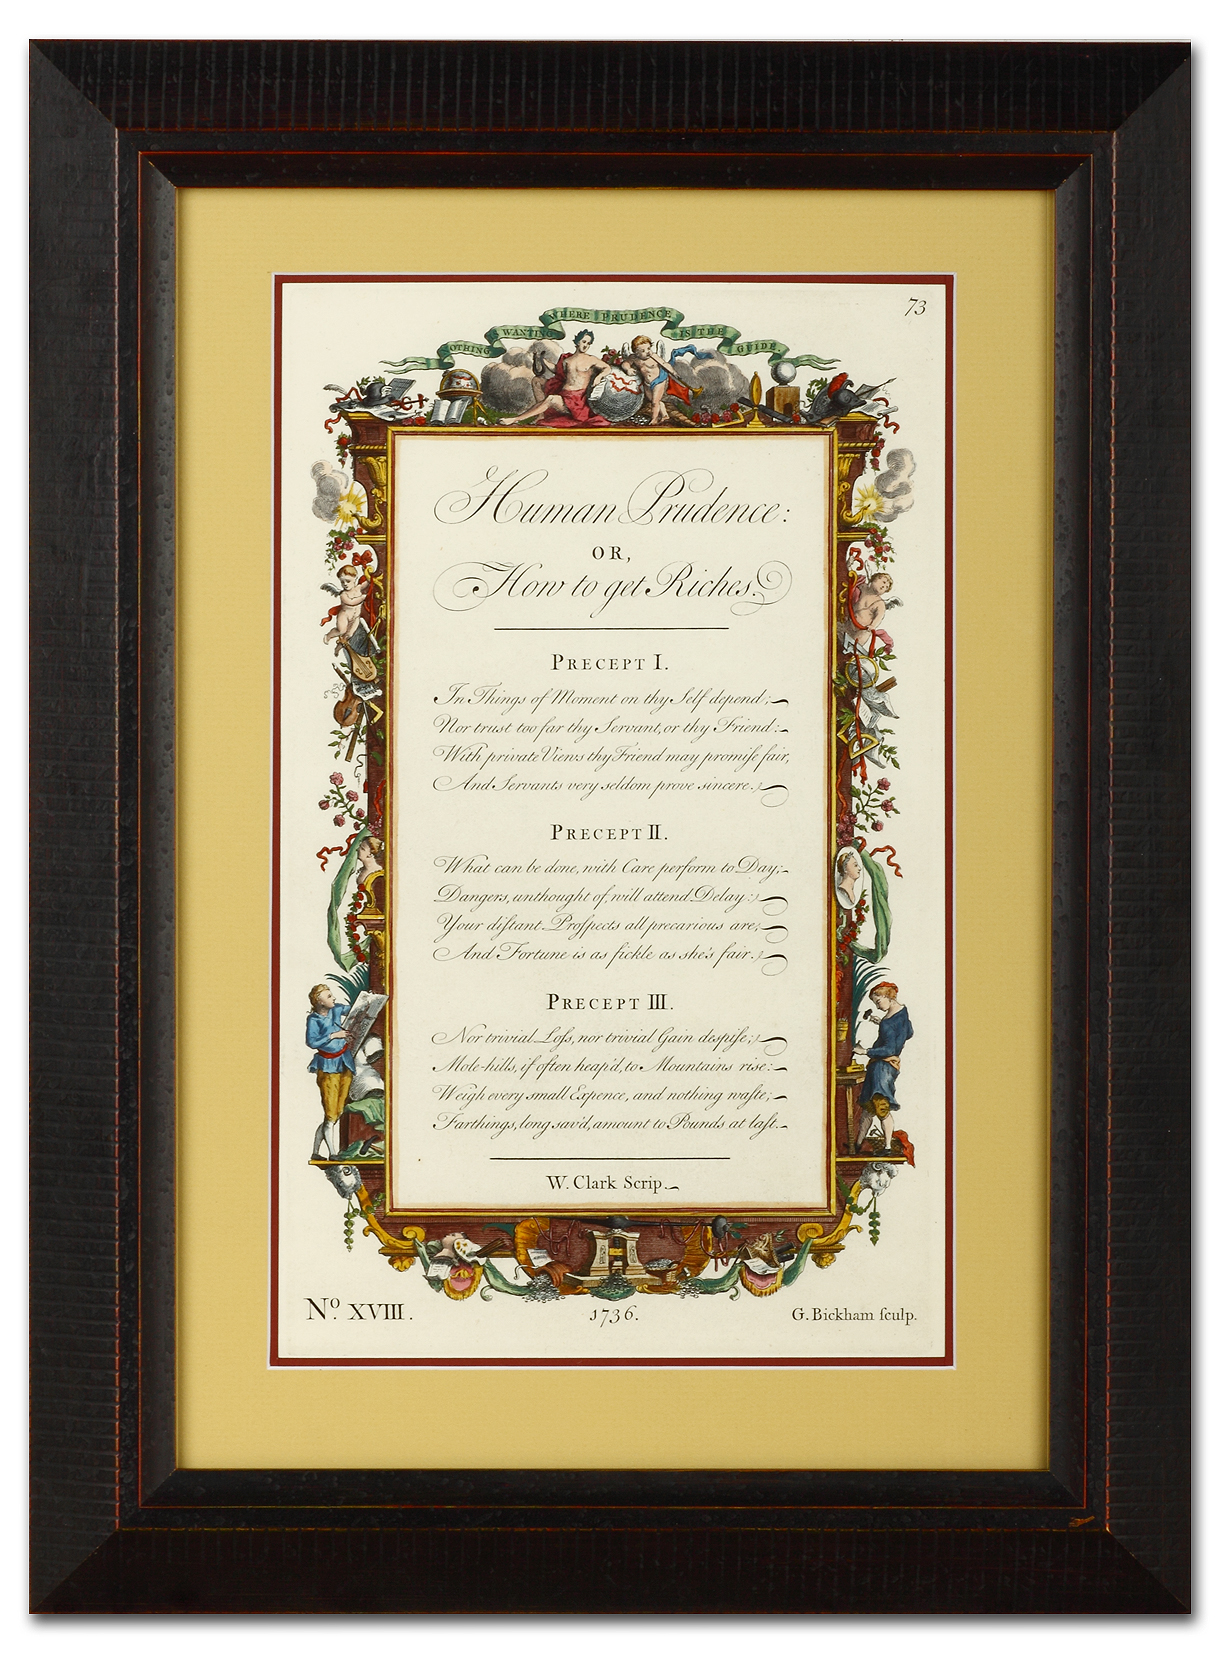 73
NOTHING IS WANTING WHERE PRUDENCE IS THE GUIDE
Human Prudence:
OR,
How to get Riches.
PRECEPT I.
In Things of Moment on thy Self depend;
Nor trust too far thy Servant, or thy Friend:
With private Views thy Friend may promiſe fair,
And Servants very seldom prove sincere.
PRECEPT II.
What can be done, with Care perform to Day;
Dangers, unthought of, will attend Delay:
Your diſtant Proſpects all precarious are;
And Fortune is as fickle as she's fair.
PRECEPT III.
Nor trivial Loſs, nor trivial Gain despiſe;
Mole-hills, if often heap'd, to Mountains rise:
Weigh every small Expence, and nothing waſte;
Farthings, long sav'd, amount to Pounds at laſt.
W. Clark Scrip.
No. XVIII.
1736.
G. Bickham ſculp.